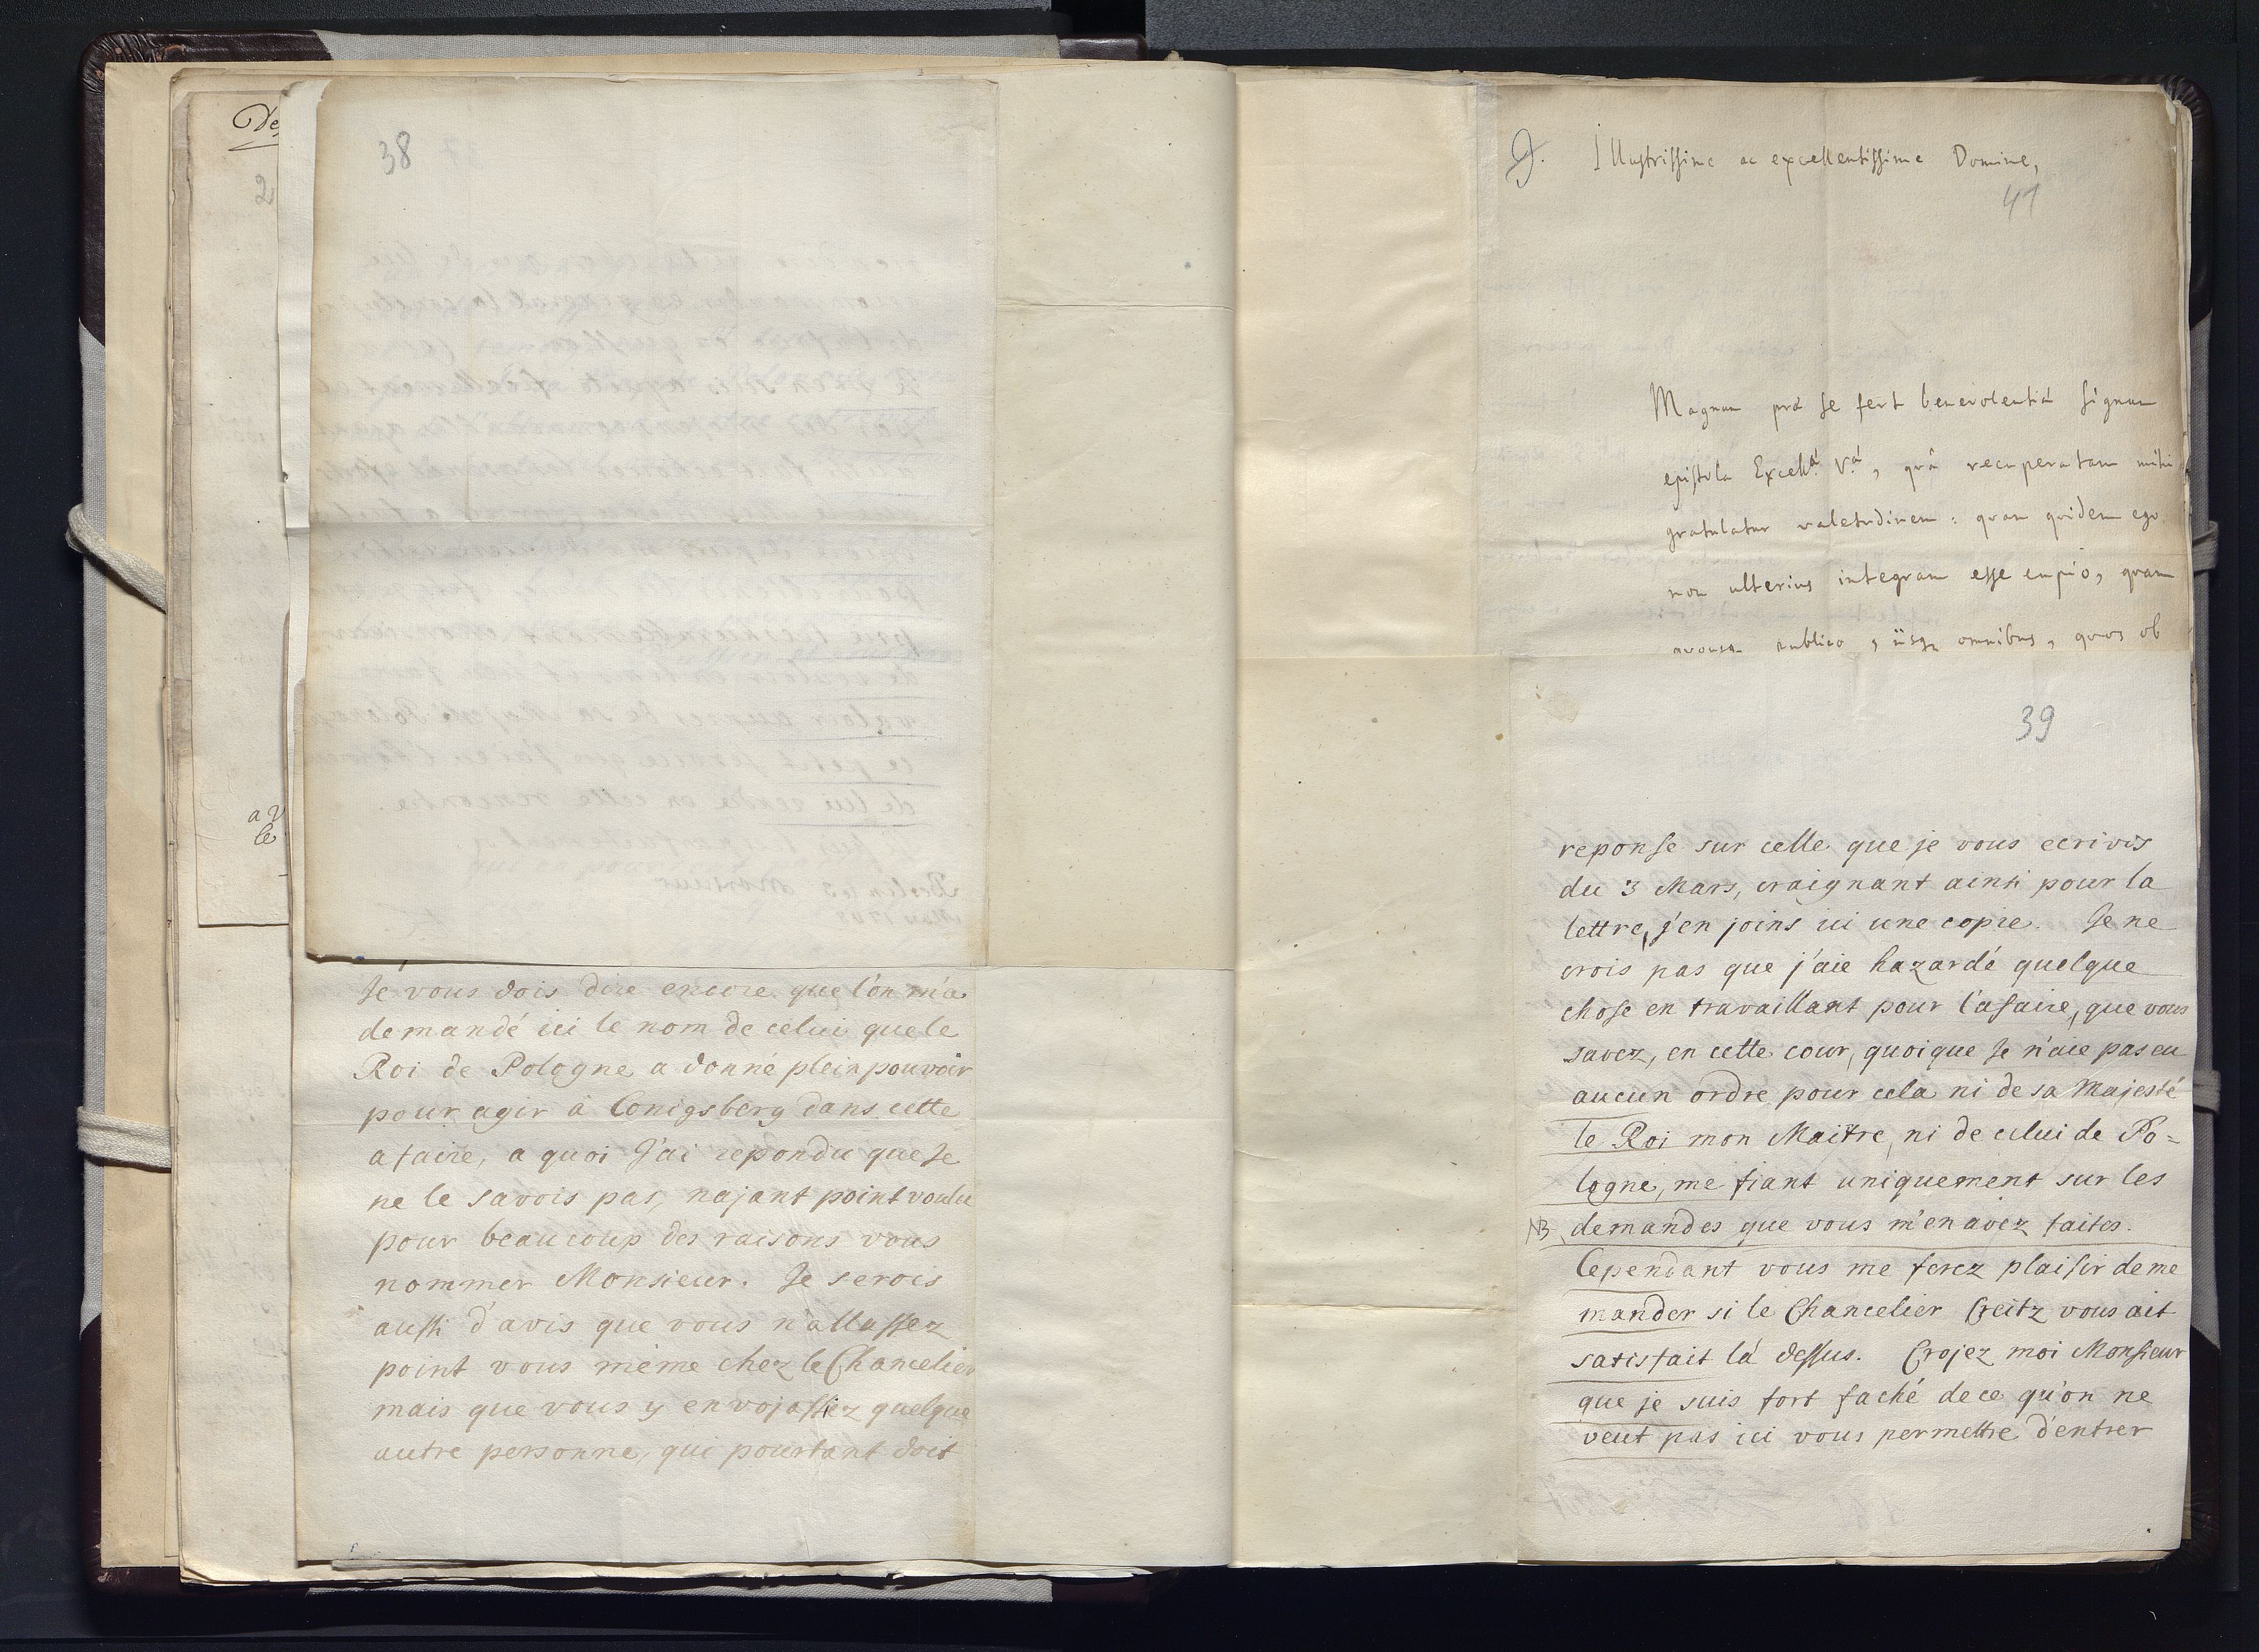 De
2
a v
le
38
Je vous dois dire encore que l'on m'a
demandé ici le nom de celui que le
Roi de Pologne a donné plein pouvoir
pour agir à Conigsberg dans cette
afaire, a quoi J'ai repondu que Je
ne le savois pas, najant point voulu
pour beaucoup des raisons vous
nommer Monsieur. Je serois
aussi d'avis que vous n'allassez
point vous même chez le Chancelier
mais que vous y envojassiez quelque
autre personne, qui pourtant doit
J. Illustrissime ac excellentissime Domine,
41
Magnum præ se fert benevolentiæ signum
epistola Excellæ. Væ, quâ recuperatam mihi
gratulatur valetudinem: quam quidem ego
non ulterius integram esse cupio, quam
publico, iisq omnibus, quos ob
39
reponse sur celle que je vous ecrivis
du 3 Mars, craignant ainsi pour la
lettre, j'en joins ici une copie. Je ne
crois pas que j'aie hazardé quelque
chose en travaillant pour l'afaire, que vous
savez, en cette cour, quoique Je n'aie pas eu
aucun ordre pour cela ni de sa Majesté
le Roi mon Maitre, ni de celui de Po=
logne, me fiant uniquement sur les
NB demandes que vous m'en avez faites.
Cependant vous me ferez plaisir de me
mander si le Chancelier Creitz vous ait
satisfait là dessus. Crojez moi Monsieur
que je suis fort faché de ce qu'on ne
veut pas ici vous permettre d'entrer